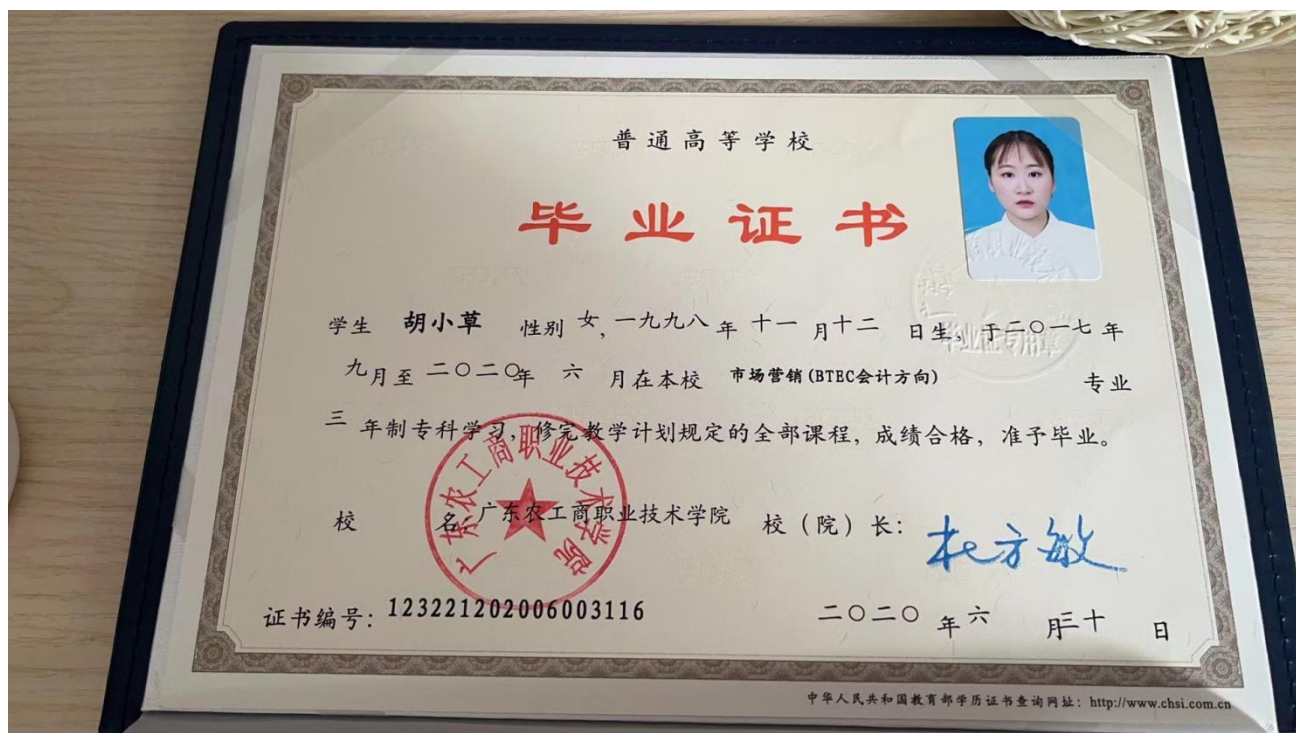 普通高等学校
毕业证书
学生 胡小草 性别 女, 一九九八 年 十一 月十二 日生, 于二〇一七 年
九月至 二〇二〇年 六 月在本校 市场营销(BTEC会计方向) 专业
三 年制专科学习, 修完教学计划规定的全部课程, 成绩合格, 准予毕业。
校 名: 广东农工商职业技术学院 校(院)长: 杜方敏
广东农工商职业技术学院
毕业证专用章
证书编号: 123221202006003116 二〇二〇 年 六 月三十 日
中华人民共和国教育部学历证书查询网址: http://www.chsi.com.cn